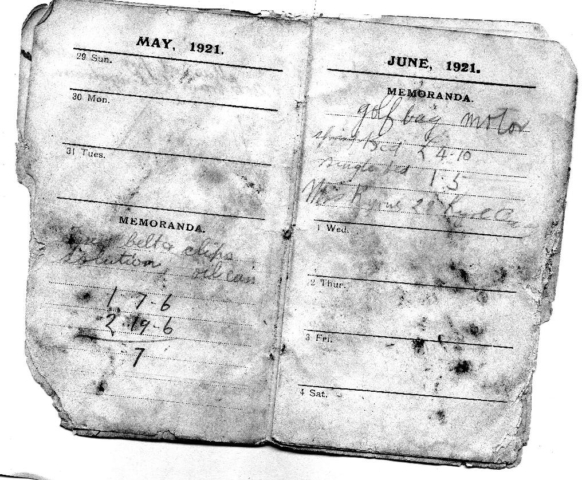 MAY, 1921.
29 Sun.
30 Mon.
31 Tues.
MEMORANDA.
belt & clips
Solution, oil can
1 7-6
2-19-6
7
JUNE, 1921.
MEMORANDA.
golf bag motor
Bed £4-10
Single bed 1-5
1 Wed.
2 Thur.
3 Fri.
4 Sat.